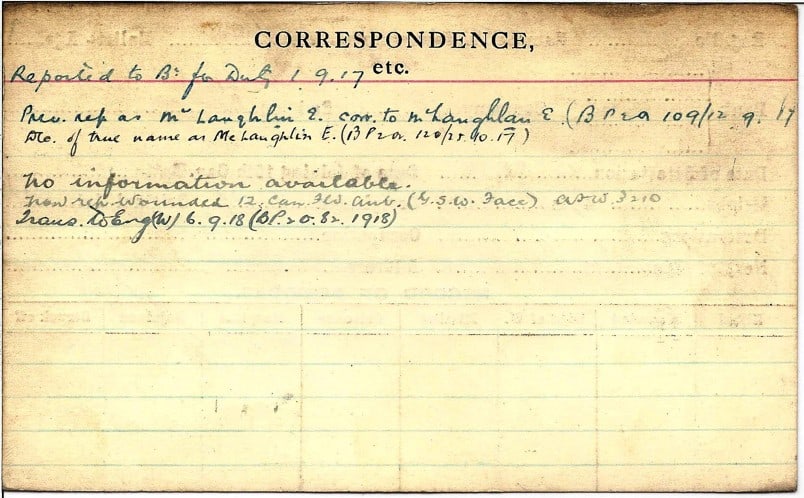 CORRESPONDENCE,
etc.
Reported to Bn for Duty 1.9.17
Prev. rep as Mc Laughlin E. corr. to McLaughlan E. (B P2a 109/12.9.17
Dec. of true name as McLaughlin E. (B P2a. 120/25.10.17)
No information available.
now rep. Wounded 12. Can. Fld. Amb. (G.S.W. Face) 3210
Trans. To Eng (W) 6.9.18 (BP. 20. 82. 1918)